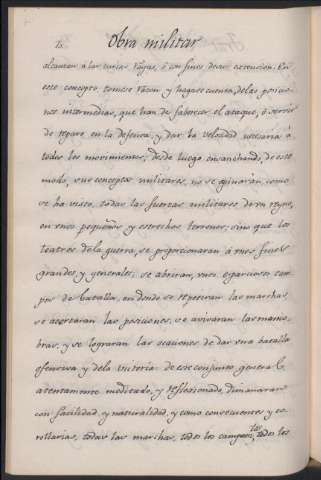 Obra militar
alcancen a las
este concepto tomese razon y hagase cuenta, delas posicio-
nes intermedias, que han de faborecer el ataque, ó servir
de reparo en la defensa, y dar la velosidad necesaria á
todos los movimientos; desde luego ensanchando, de este
modo, sus conceptos militares, no se opinarán, como
se ha visto, todas las fuerzas militares de un reyno,
en unos pequeños y estrechos terrenos; sino que los
teatros dela guerra, se proporcionaran á unos fines
grandes, y generales; se abriran, unos espaciosos cam-
pos de batalla, en donde se repetiran las marchas,
se acertaran las posiciones, se avivaran las manio-
bras, y se lograran las ocaciones de dar una batalla
ofensiva y dela victoria de este conjunto general,
atentamente meditado, y reflexionado, dimanaran
con facilidad y naturalidad, y como consecuentes y co-
rolarios, todas las marchas, todos los campam.tos, todos los